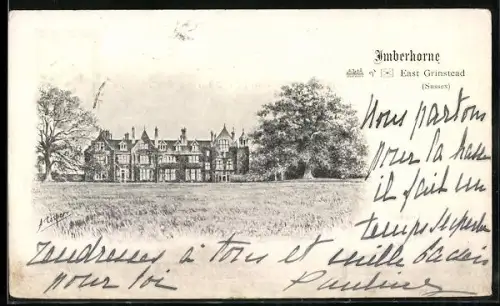 Imberhorne
East Grinstead
(Sussex)
Nous partons
pour la chasse
il fait un
temps superbe
Tendresses à tous et mille baisers
pour toi
Pauline